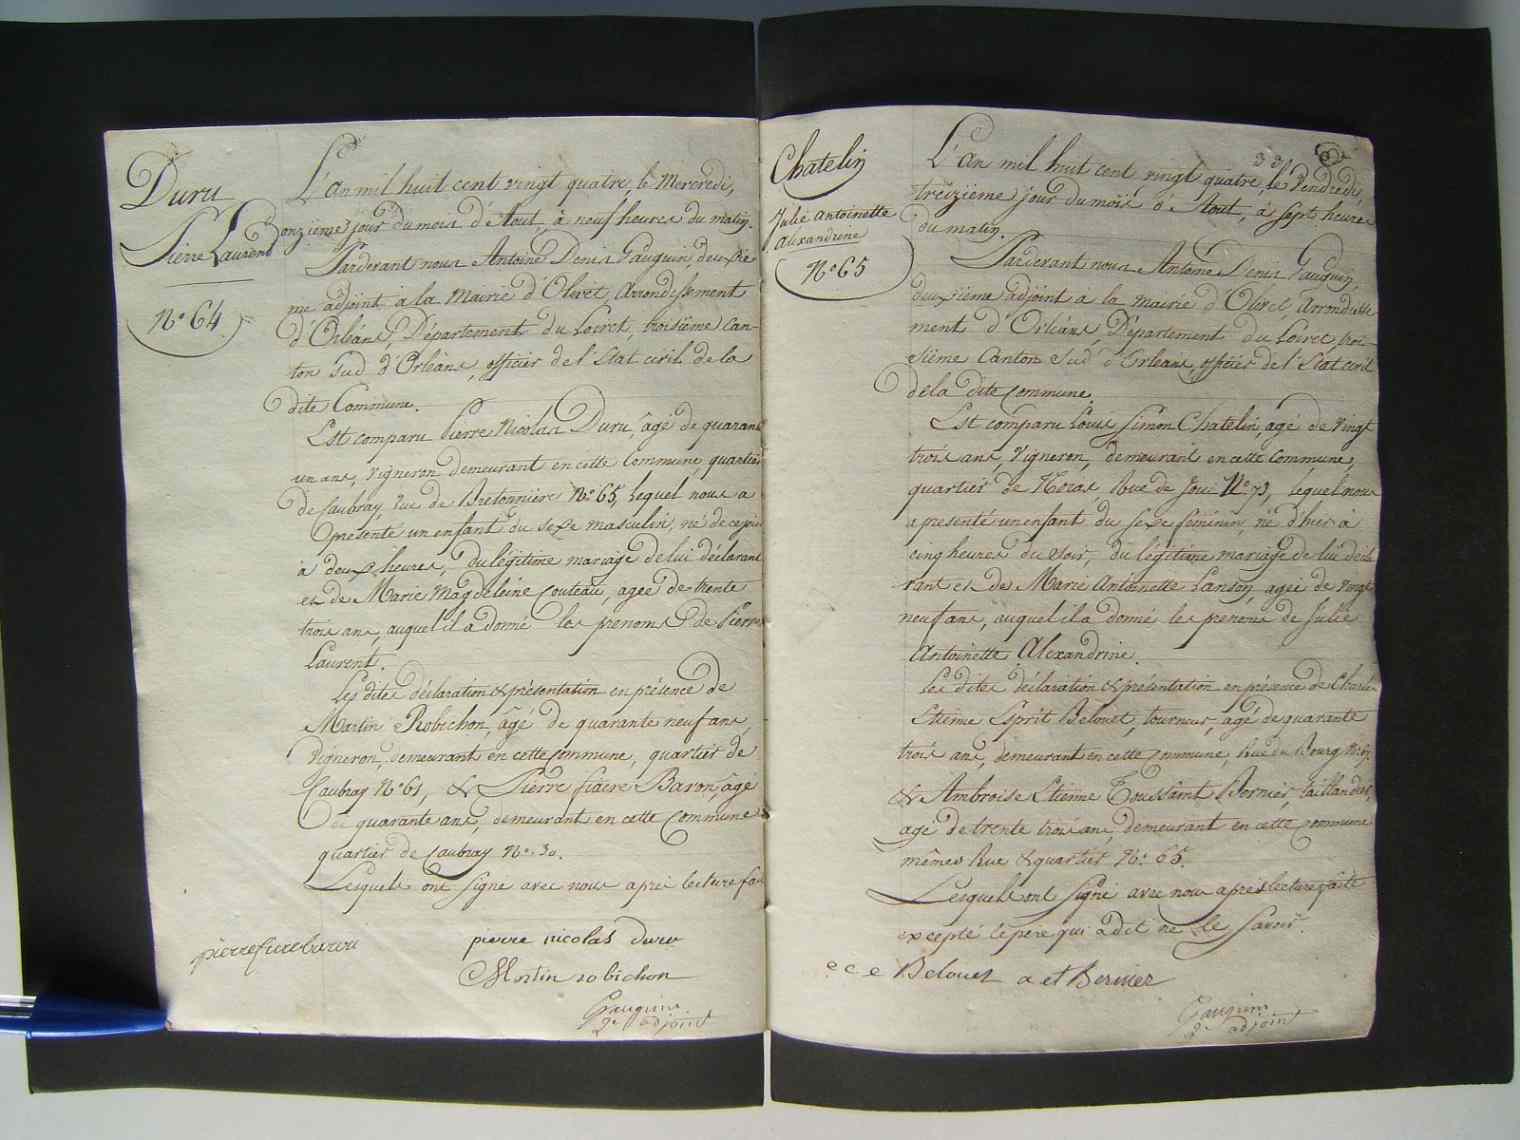 Duru
Pierre Laurent
N° 64
L'an mil huit cent vingt quatre, le Mercredi,
onzième jour du mois d'Aout, à neuf heures du matin.
Pardevant nous Antoine Denis Gauguin deuxiè
me adjoint à la Mairie d'Olivet, Arrondissement
d'Orléans, Département du Loiret, troisième can-
ton Sud d'Orléans, officier de l'Etat civil de la
dite Commune.
Est comparu Pierre Nicolas Duru, âgé de quarante
un ans, vigneron demeurant en cette Commune, quartier
de Caubray, rue de Bretonnière N° 65, Lequel nous a
présenté un enfant du sexe masculin, né de ce jour
à deux heures, du légitime mariage de lui déclarant
et de Marie Magdeleine Couteau, agée de trente
trois ans, auquel il a donné les prenoms de Pierre
Laurent.
Les dites déclaration & présentation en présence de
Martin Robichon, âgé de quarante neuf ans,
Vigneron, demeurant en cette commune, quartier de
Caubray N° 61, & Pierre fiacre Baron, âgé
de quarante ans, demeurant en cette Commune
quartier de Caubray N° 30.
Lesquels ont signé avec nous après lecture fai
pierre nicolas duru
Martin robichon
Gauguin
2e adjoint
Chatelin
Julie Antoinette
Alexandrine
N° 65
33
L'an mil huit cent vingt quatre, le Vendredi
treizième jour du mois d'Aout, à sept heures
du matin.
Pardevant nous Antoine Denis Gauguin,
deuxième adjoint à la mairie d'Olivet, Arrondisse
ment d'Orléans, Département du Loiret, troi-
sième Canton Sud d'Orléans, officier de l'Etat civil
de la dite commune.
Est comparu Louis Simon Chatelin, agé de vingt
trois ans, Vigneron, demeurant en cette commune,
quartier de Rue de N° 73, lequel nous
a présenté un enfant du sexe féminin, né d'hier à
cinq heures du soir, du légitime mariage de lui décla
rant et de Marie Antoinette Lanson, agée de vingt
neuf ans, auquel il a donné les prenoms de Julie
Antoinette Alexandrine.
Les dites déclaration & présentation en présence de Charles
Etienne Esprit Belouet, tourneur, agé de quarante
trois ans, demeurant en cette commune, Rue du Bourg
& Ambroise Etienne Toussaint Bernier, taillandier,
agé de trente trois ans, demeurant en cette commune
mêmes Rue & quartier N° 65.
Lesquels ont signé avec nous après lecture faite
excepté le père qui a dit ne le savoir.
e c e Belouet a et Bernier
Gauguin
2e adjoint